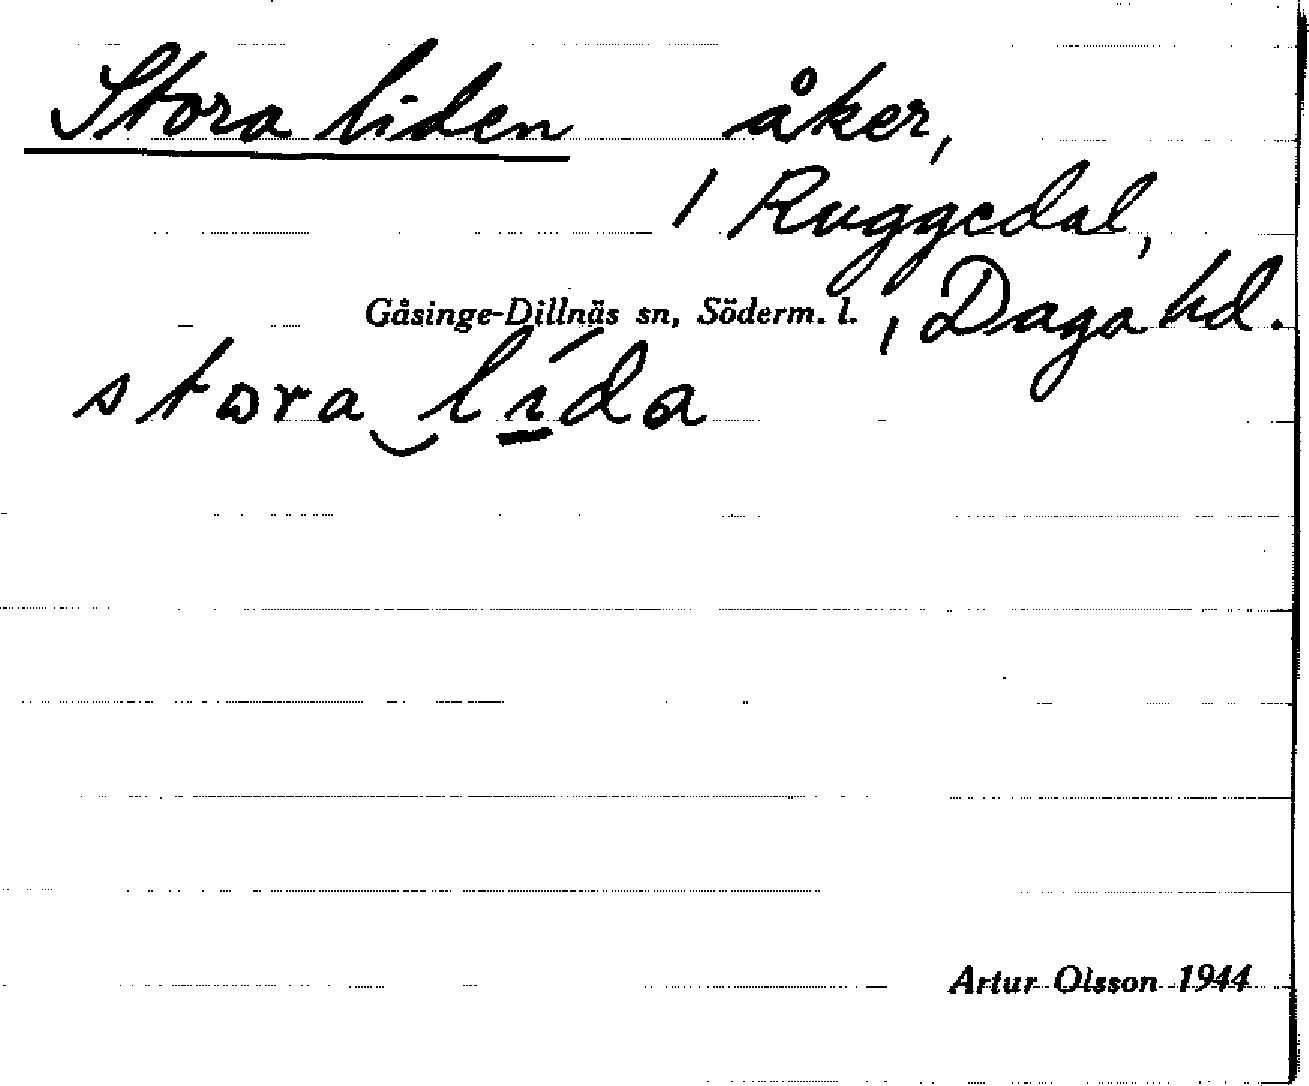 Stora liden åker,
1 Ruggedal,
Gåsinge-Dillnäs sn, Söderm. l., Daga hd.
stora‿lí̱da
Artur Olsson 1944